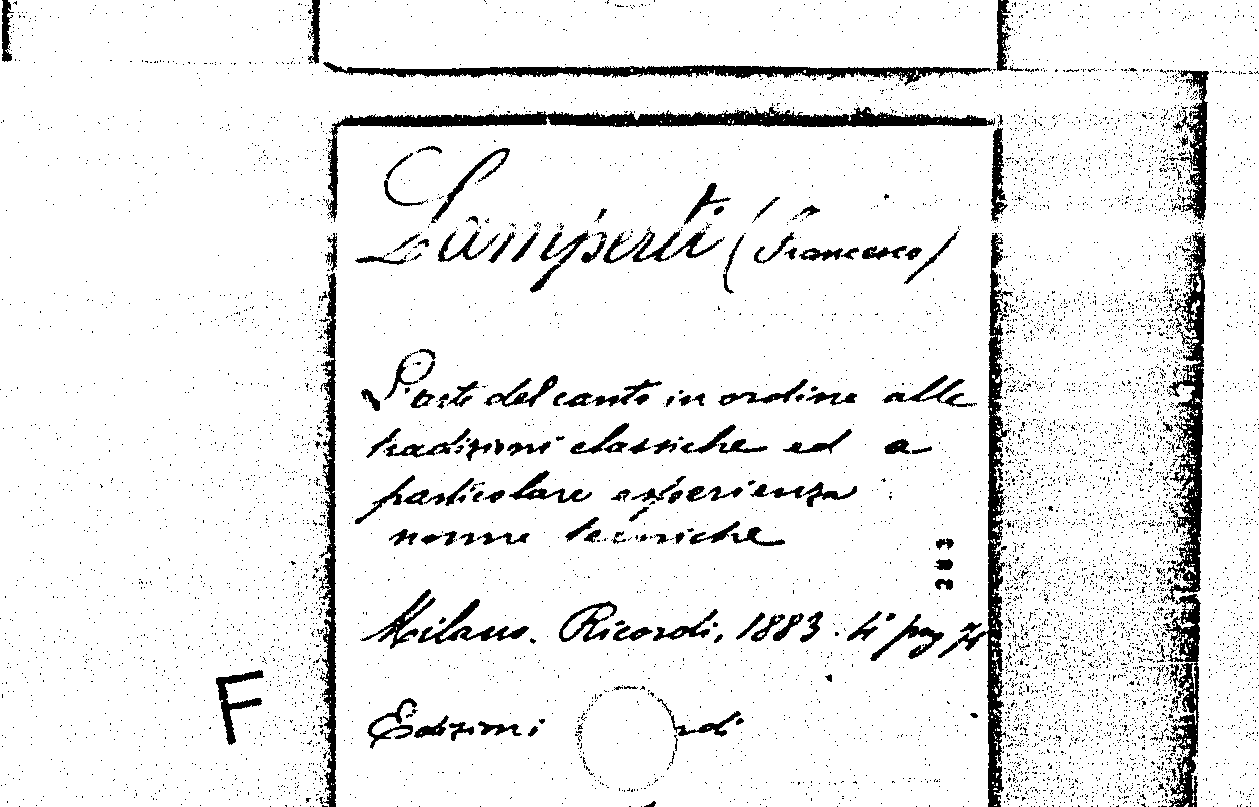 Lamperti (Francesco)
L'arte del canto in ordine alle
tradizioni classiche ed a
particolare esperienza
norme tecniche
283
Milano. Ricordi, 1883. 4° pag
F
Edizioni